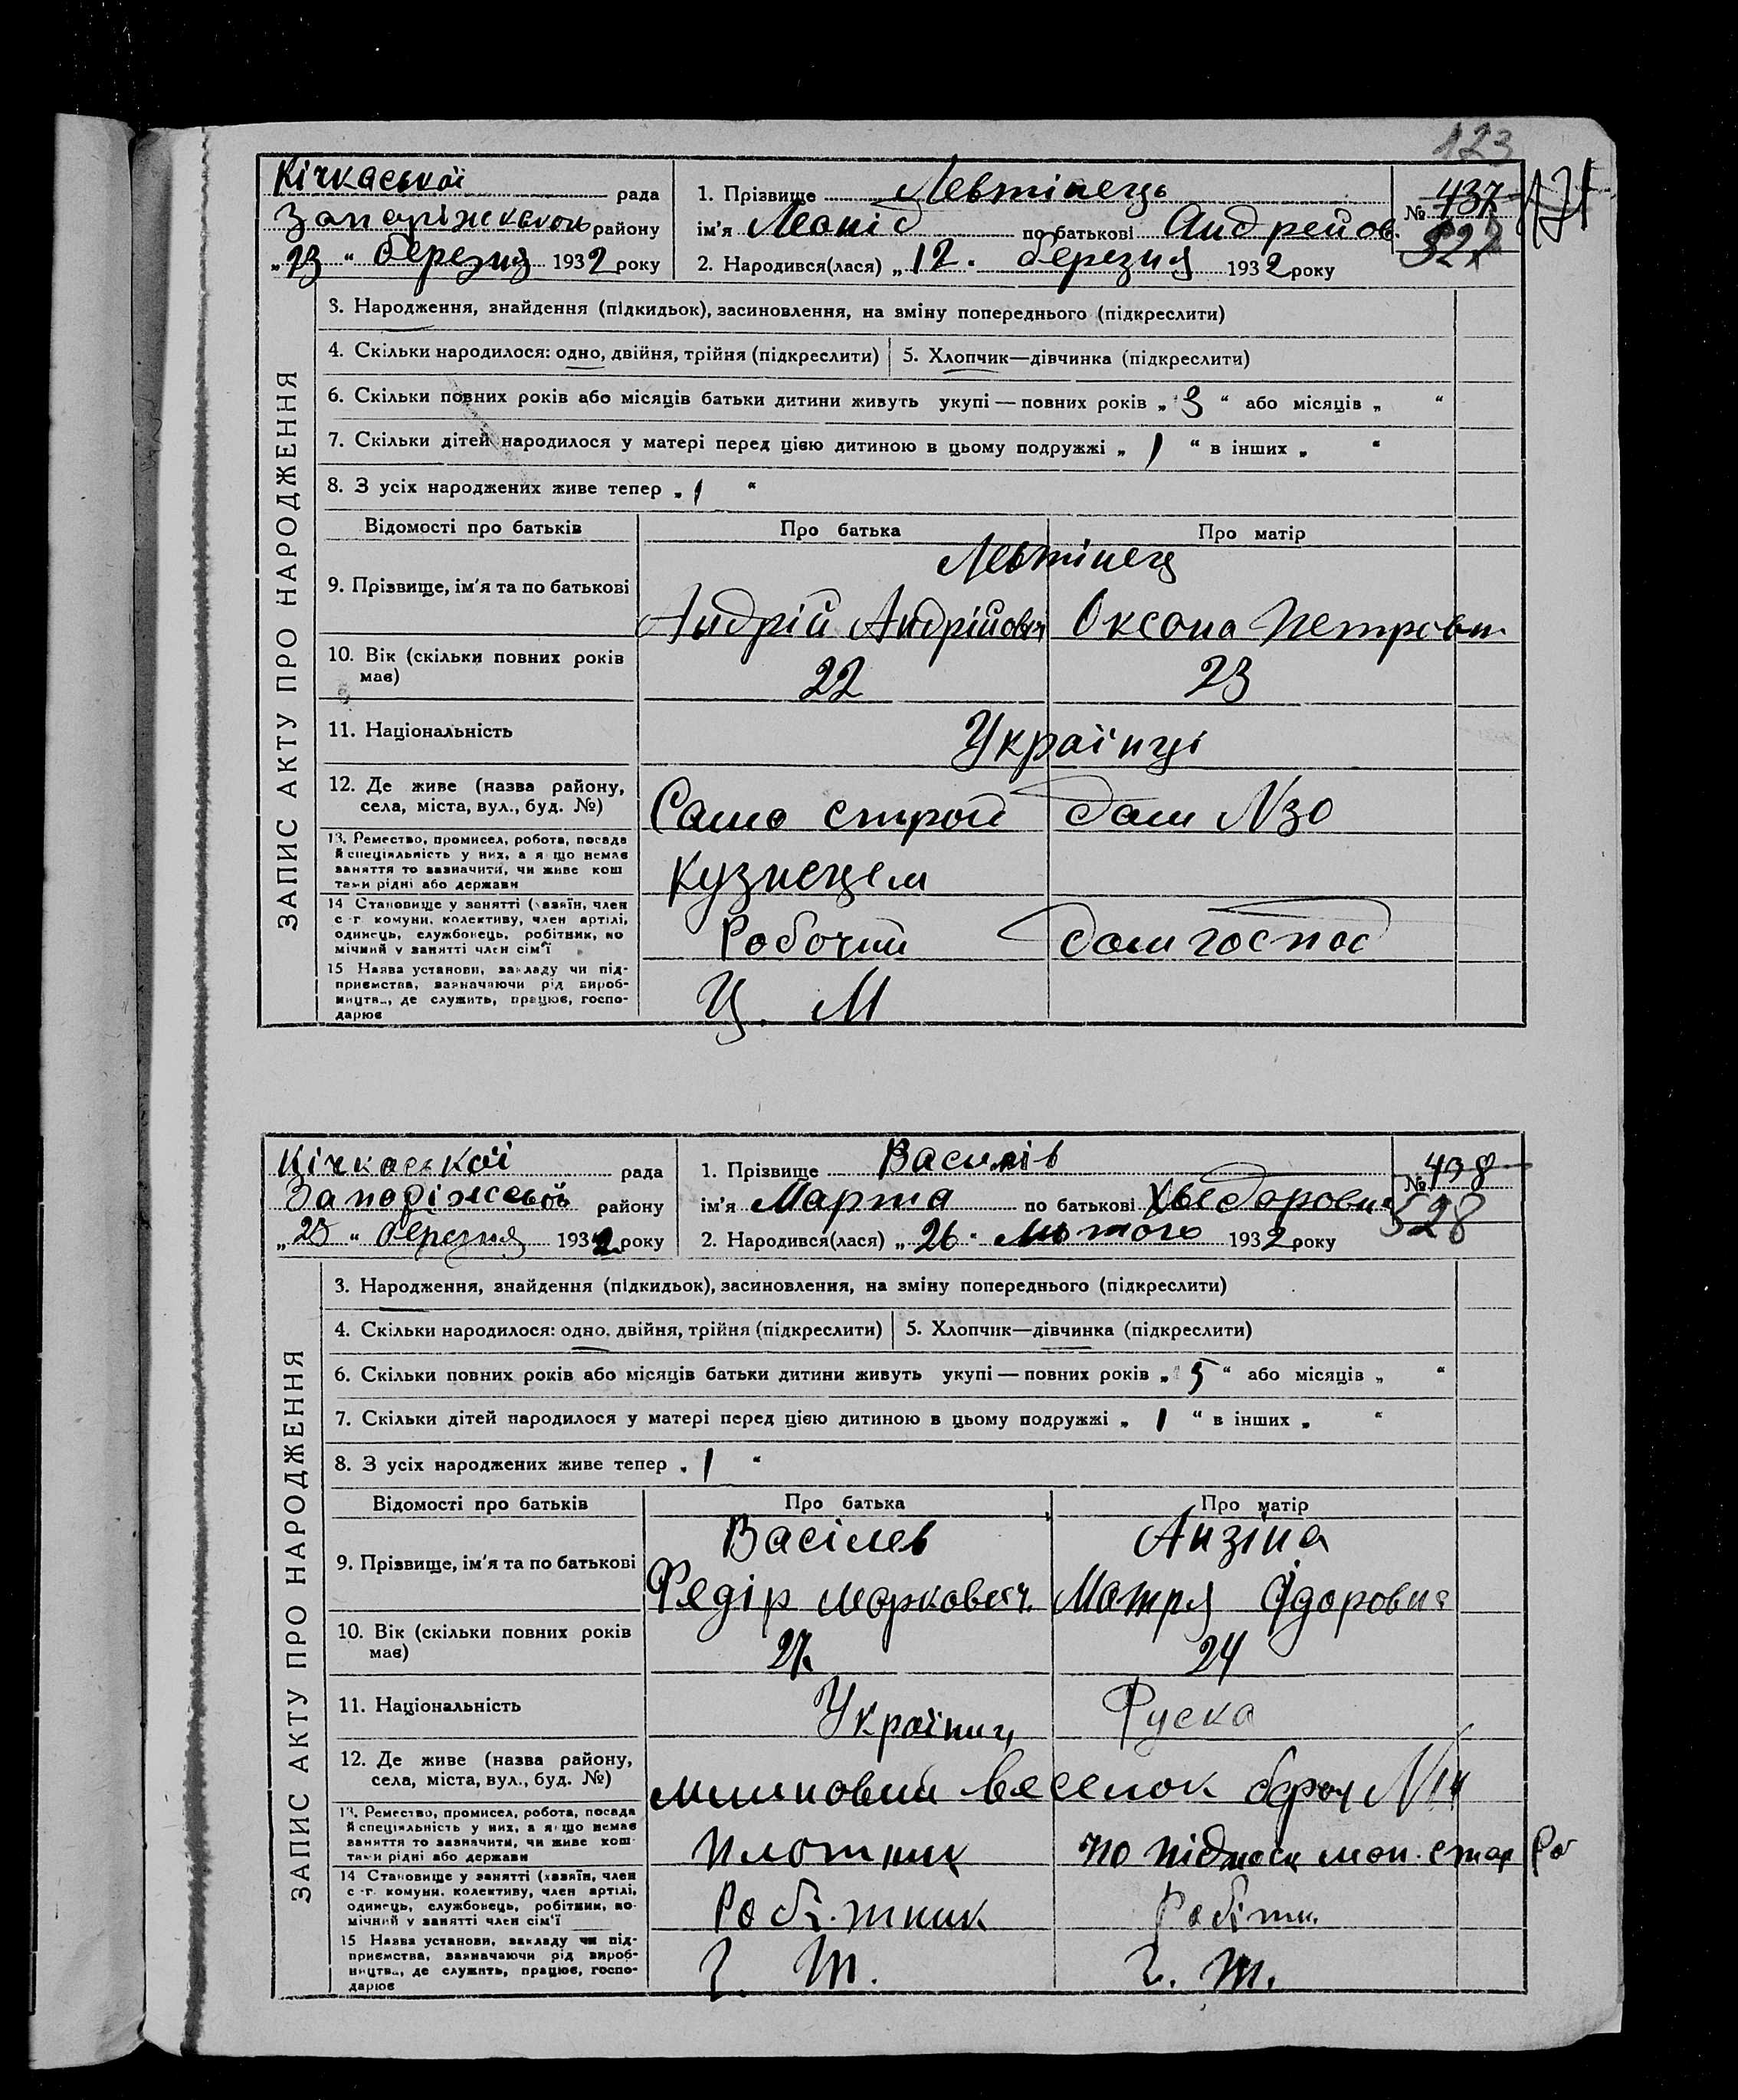 123
Кічкаської рада
Запоріжської району
„23“ березня 1932 року
1. Прізвище Левтінець
ім'я Леонід по батькові Андрейов.
2. Народився(лася) „12. березня 1932 року
№ 437
527
171
ЗАПИС АКТУ ПРО НАРОДЖЕННЯ
3. Народження, знайдення (підкидьок), засиновлення, на зміну попереднього (підкреслити)
4. Скільки народилося: одно, двійня, трійня (підкреслити) 5. Хлопчик—дівчинка (підкреслити)
6. Скільки повних років або місяців батьки дитини живуть укупі — повних років „3“ або місяців „ “
7. Скільки дітей народилося у матері перед цією дитиною в цьому подружжі „1“ в інших „ “
8. З усіх народжених живе тепер „1“
Відомості про батьків Про батька Про матір
Левтінец
9. Прізвище, ім'я та по батькові
Андрій Андрійович Оксона Петровн
10. Вік (скільки повних років має) 22 23
11. Національність Українці
12. Де живе (назва району,
села, міста, вул., буд. №) Само строй дом N30
13. Ремество, промисел, робота, посада
й спеціяльність у них, а якщо немає
заняття то зазначити, чи живе кош
тами рідні або держави
Кузнецем
14 Становище у занятті (хазяїн, член
с.-г. комуни, колективу, член артілі,
одинець, службовець, робітник, по
мічний у занятті член сім'ї
Робочий дом госпос
15 Назва установи, закладу чи під-
приємства, зазначаючи рід вироб-
ництва, де служить, працює, госпо-
дарює
Ц. М
Кічкаської рада
Запоріжської району
„23“ березня 1932 року
1. Прізвище Василів
ім'я Марта по батькові Хведоровна
2. Народився(лася) „26“ Лютого 1932 року
№ 438
528
ЗАПИС АКТУ ПРО НАРОДЖЕННЯ
3. Народження, знайдення (підкидьок), засиновлення, на зміну попереднього (підкреслити)
4. Скільки народилося: одно, двійня, трійня (підкреслити) 5. Хлопчик—дівчинка (підкреслити)
6. Скільки повних років або місяців батьки дитини живуть укупі — повних років „5“ або місяців „ “
7. Скільки дітей народилося у матері перед цією дитиною в цьому подружжі „1“ в інших „ “
8. З усіх народжених живе тепер „1“
Відомості про батьків Про батька Про матір
Васілев Анзіна
9. Прізвище, ім'я та по батькові
Федір Маркович. Мотря Фдоровна
10. Вік (скільки повних років має) 27 24
11. Національність Українц Руска
12. Де живе (назва району,
села, міста, вул., буд. №) Веселок N14
13. Ремество, промисел, робота, посада
й спеціяльність у них, а якщо немає
заняття то зазначити, чи живе кош
тами рідні або держави
Плотник по
14 Становище у занятті (хазяїн, член
с.-г. комуни, колективу, член артілі,
одинець, службовець, робітник, по-
мічний у занятті член сім'ї
Робітник Робітн.
15 Назва установи, закладу чи під-
приємства, зазначаючи рід вироб-
ництва, де служить, працює, госпо-
дарює
Г. Т. Г. Т.